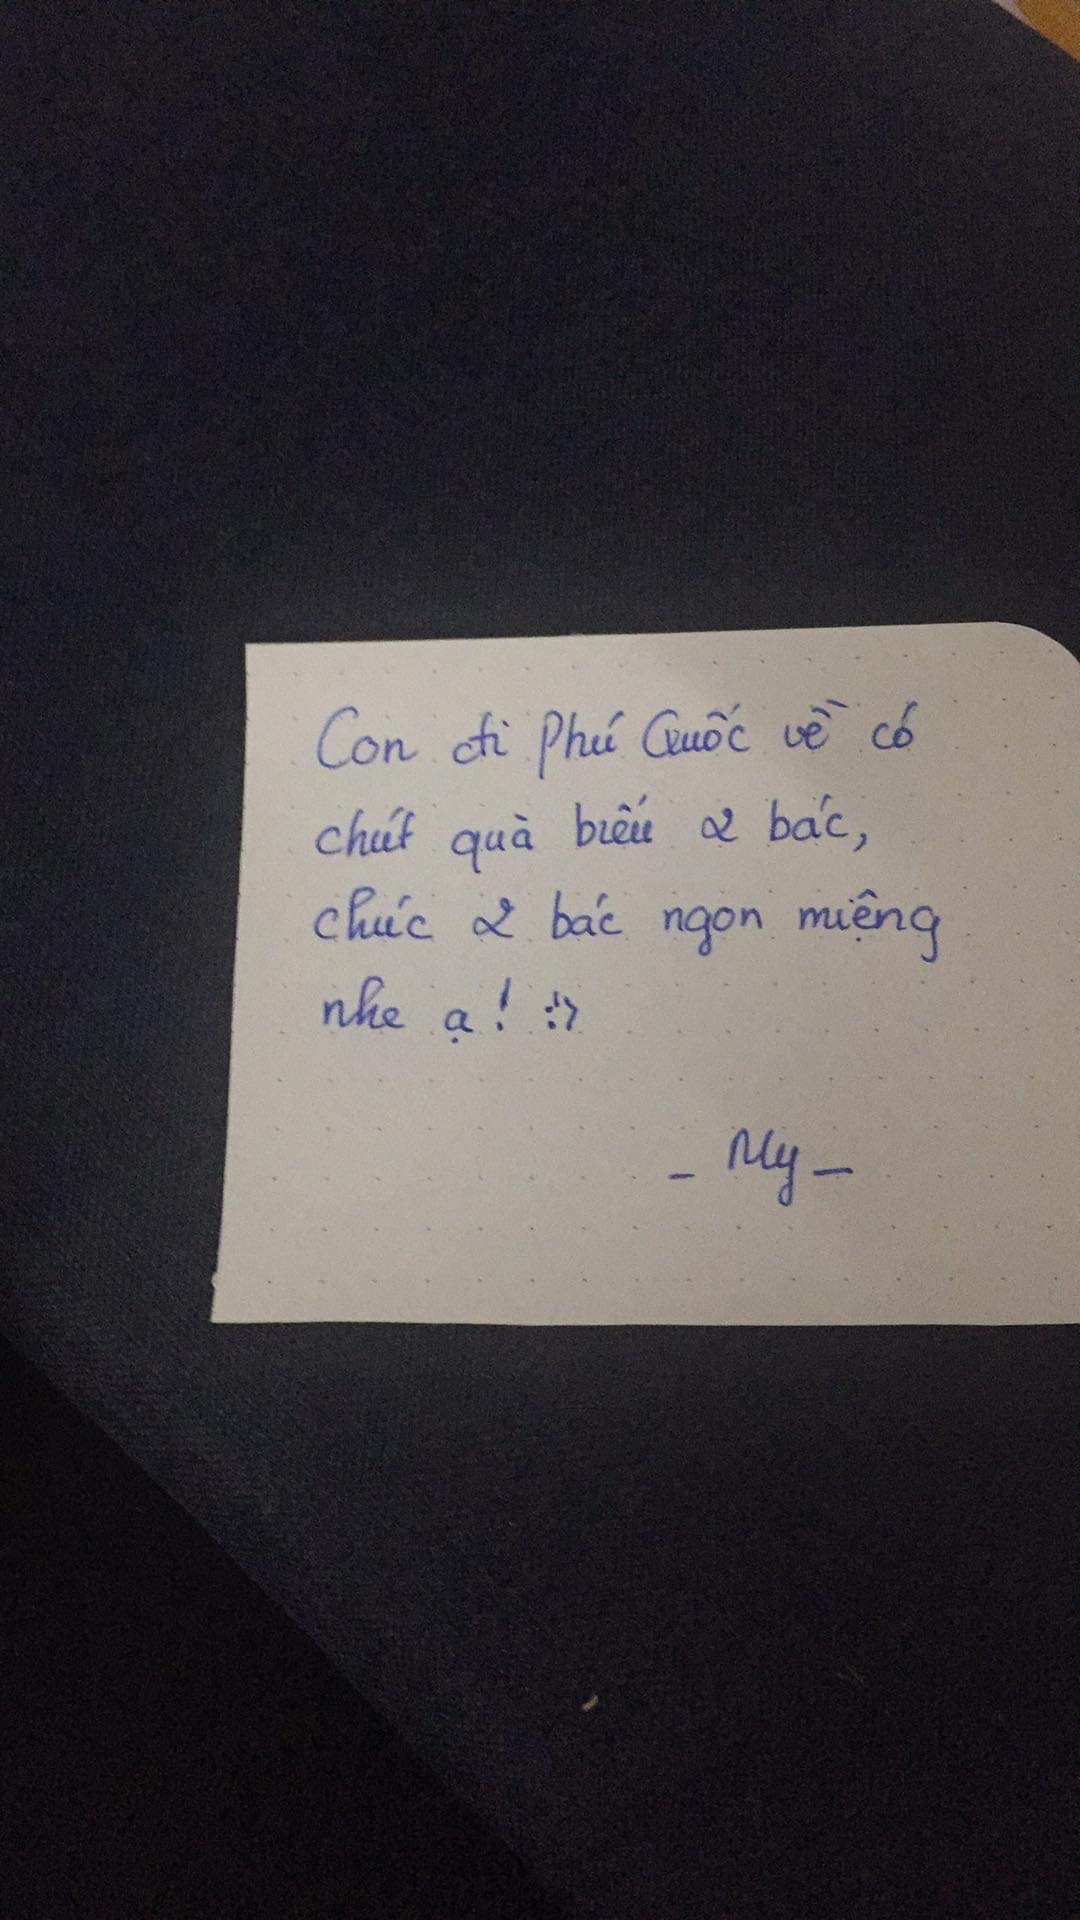 Con đi Phú Quốc về có
chút quà biếu 2 bác,
chúc 2 bác ngon miệng
nhe ạ! :'>
_ My _